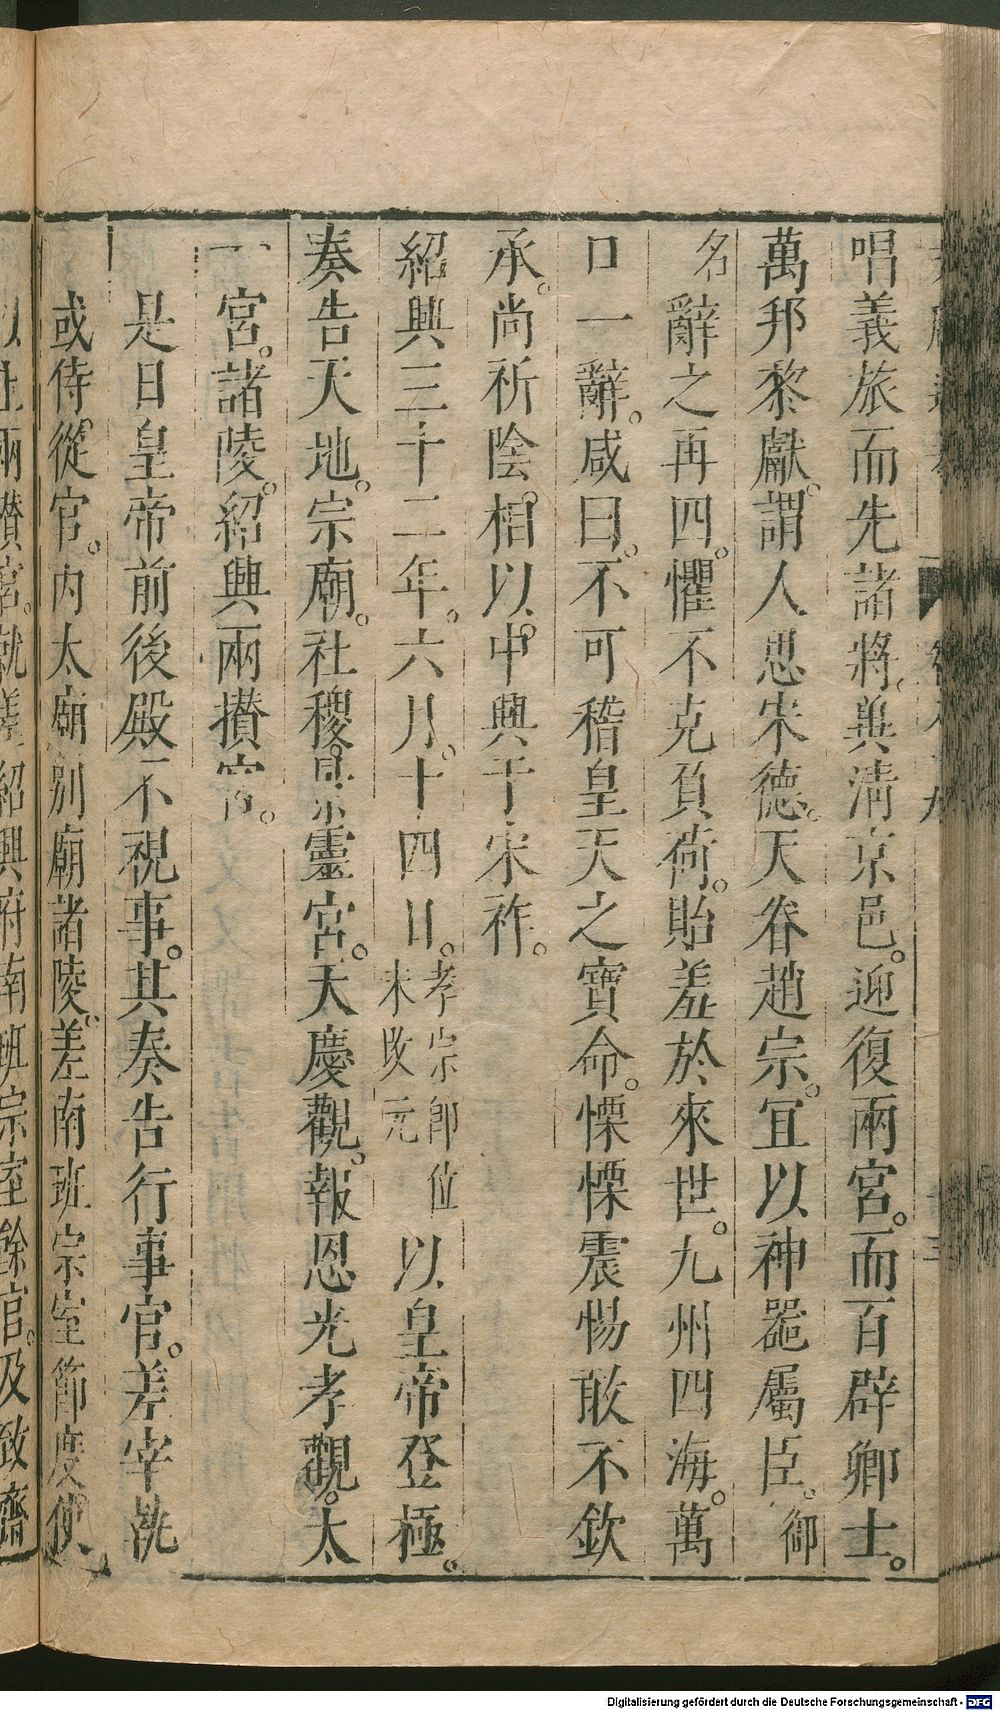 唱義旅而先諸將。冀清京邑。迎復兩宮。而百辟卿士。
萬邦黎獻。謂人思宋德。天眷趙宗。宜以神器屬臣。御
名辭之再四。懼不克負荷。貽羞於來世。九州四海。萬
口一辭。咸曰。不可稽皇天之寶命。慄慄震惕敢不欽
承。尚祈陰相。以中興于宋祚。
紹興三十二年。六月。十四日。孝宗即位未改元以皇帝登極。
奏告天地。宗廟。社稷。景靈宮。天慶觀。報恩光孝觀。太
一宮。諸陵。紹興兩攢宮。
是日皇帝前後殿不視事。其奏告行事官。差宰執
或侍從官。內太廟別廟諸陵。差南班宗室節度使
以上兩攢宮。就差紹興府南班宗室餘官。及致齋
Digitalisierung gefördert durch die Deutsche Forschungsgemeinschaft - DFG